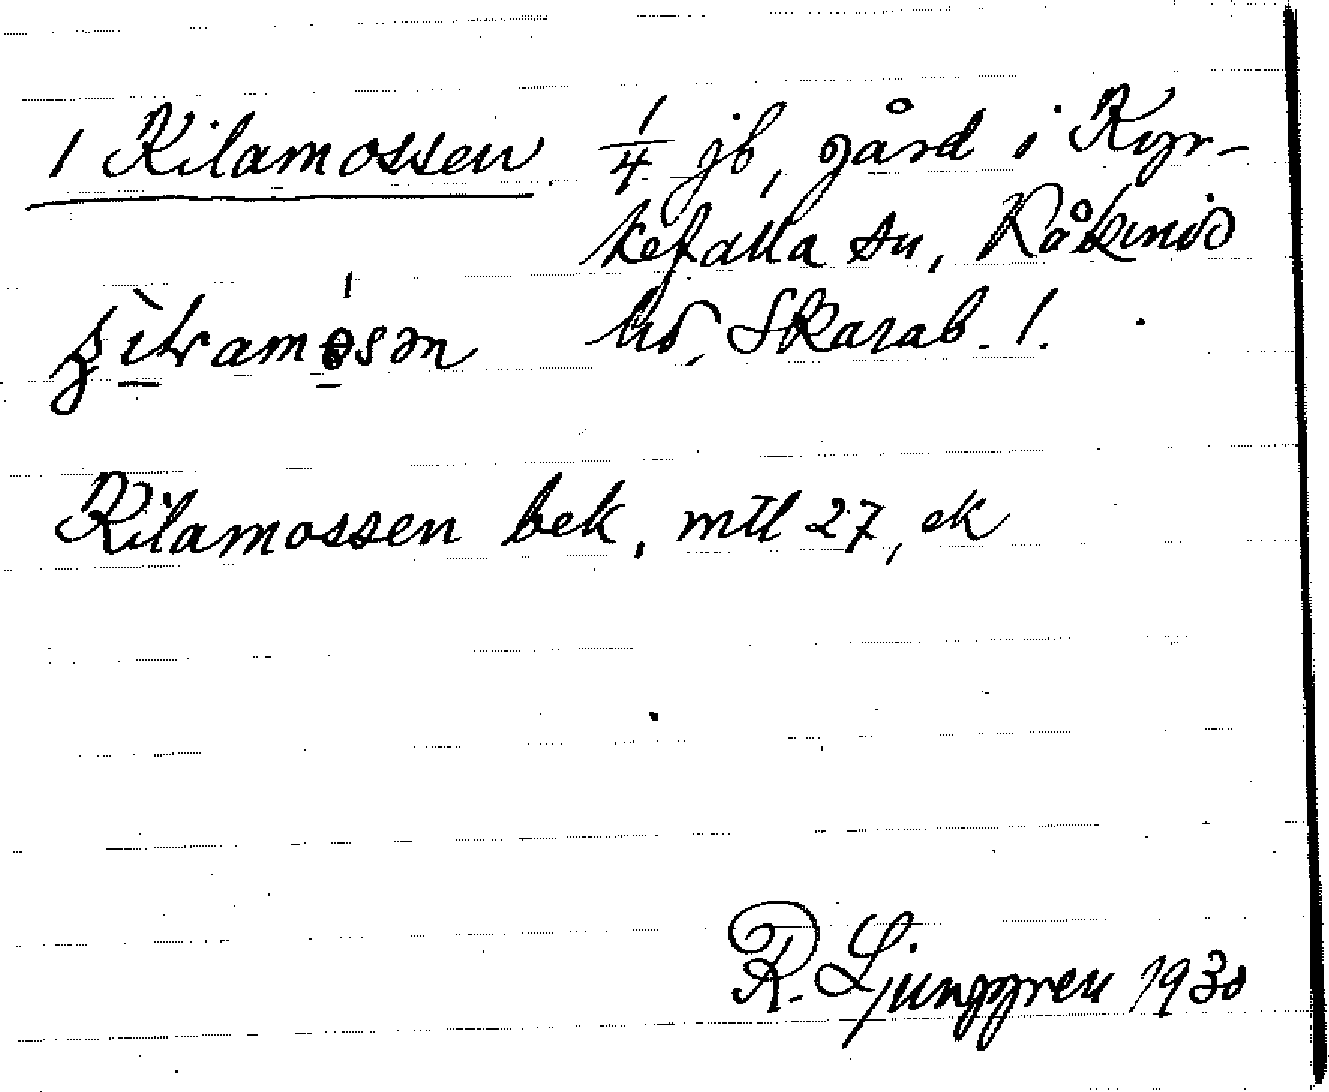 1 Kilamossen 1/4 jb, gård i Kyr-
kefalla sn, Kåkinds
hd, Skarab. l.
Kilamossen bek, mtl 27, ek
R. Ljunggren 1930